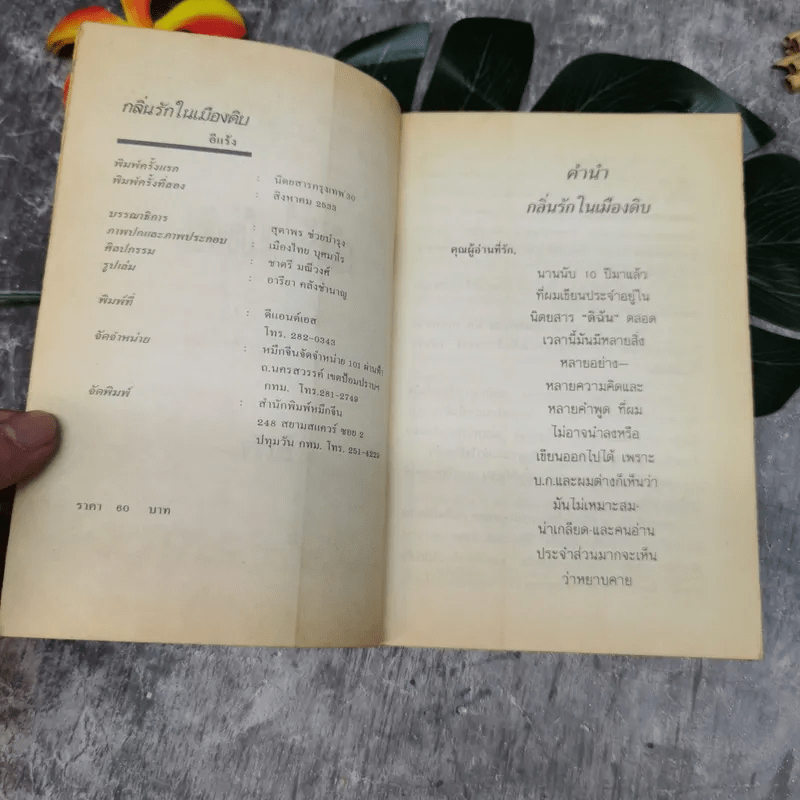 กลิ่นรักในเมืองดิบ
อีแร้ง
พิมพ์ครั้งแรก : นิตยสารกรุงเทพ 30
พิมพ์ครั้งที่สอง : สิงหาคม 2533
บรรณาธิการ : สุดาพร ช่วยบำรุง
ภาพปกและภาพประกอบ : เมืองไทย บุษมาโร
ศิลปกรรม : ชาตรี มณีวงศ์
รูปเล่ม : อารียา คลังชำนาญ
พิมพ์ที่ : ดีแอนด์เอส
โทร. 282-0343
จัดจำหน่าย : หมึกจีนจัดจำหน่าย 101 ผ่านฟ้า
ถ.นครสวรรค์ เขตป้อมปราบฯ
กทม. โทร.281-2749
จัดพิมพ์ : สำนักพิมพ์หมึกจีน
248 สยามสแควร์ ซอย 2
ปทุมวัน กทม. โทร. 251-4223
ราคา 60 บาท
คำนำ
กลิ่นรักในเมืองดิบ
คุณผู้อ่านที่รัก,
นานนับ 10 ปีมาแล้ว
ที่ผมเขียนประจำอยู่ใน
นิตยสาร “ดิฉัน” ตลอด
เวลานี้มันมีหลายสิ่ง
หลายอย่าง—
หลายความคิดและ
หลายคำพูด ที่ผม
ไม่อาจนำลงหรือ
เขียนออกไปได้ เพราะ
บ.ก.และผมต่างก็เห็นว่า
มันไม่เหมาะสม-
น่าเกลียด-และคนอ่าน
ประจำส่วนมากจะเห็น
ว่าหยาบคาย